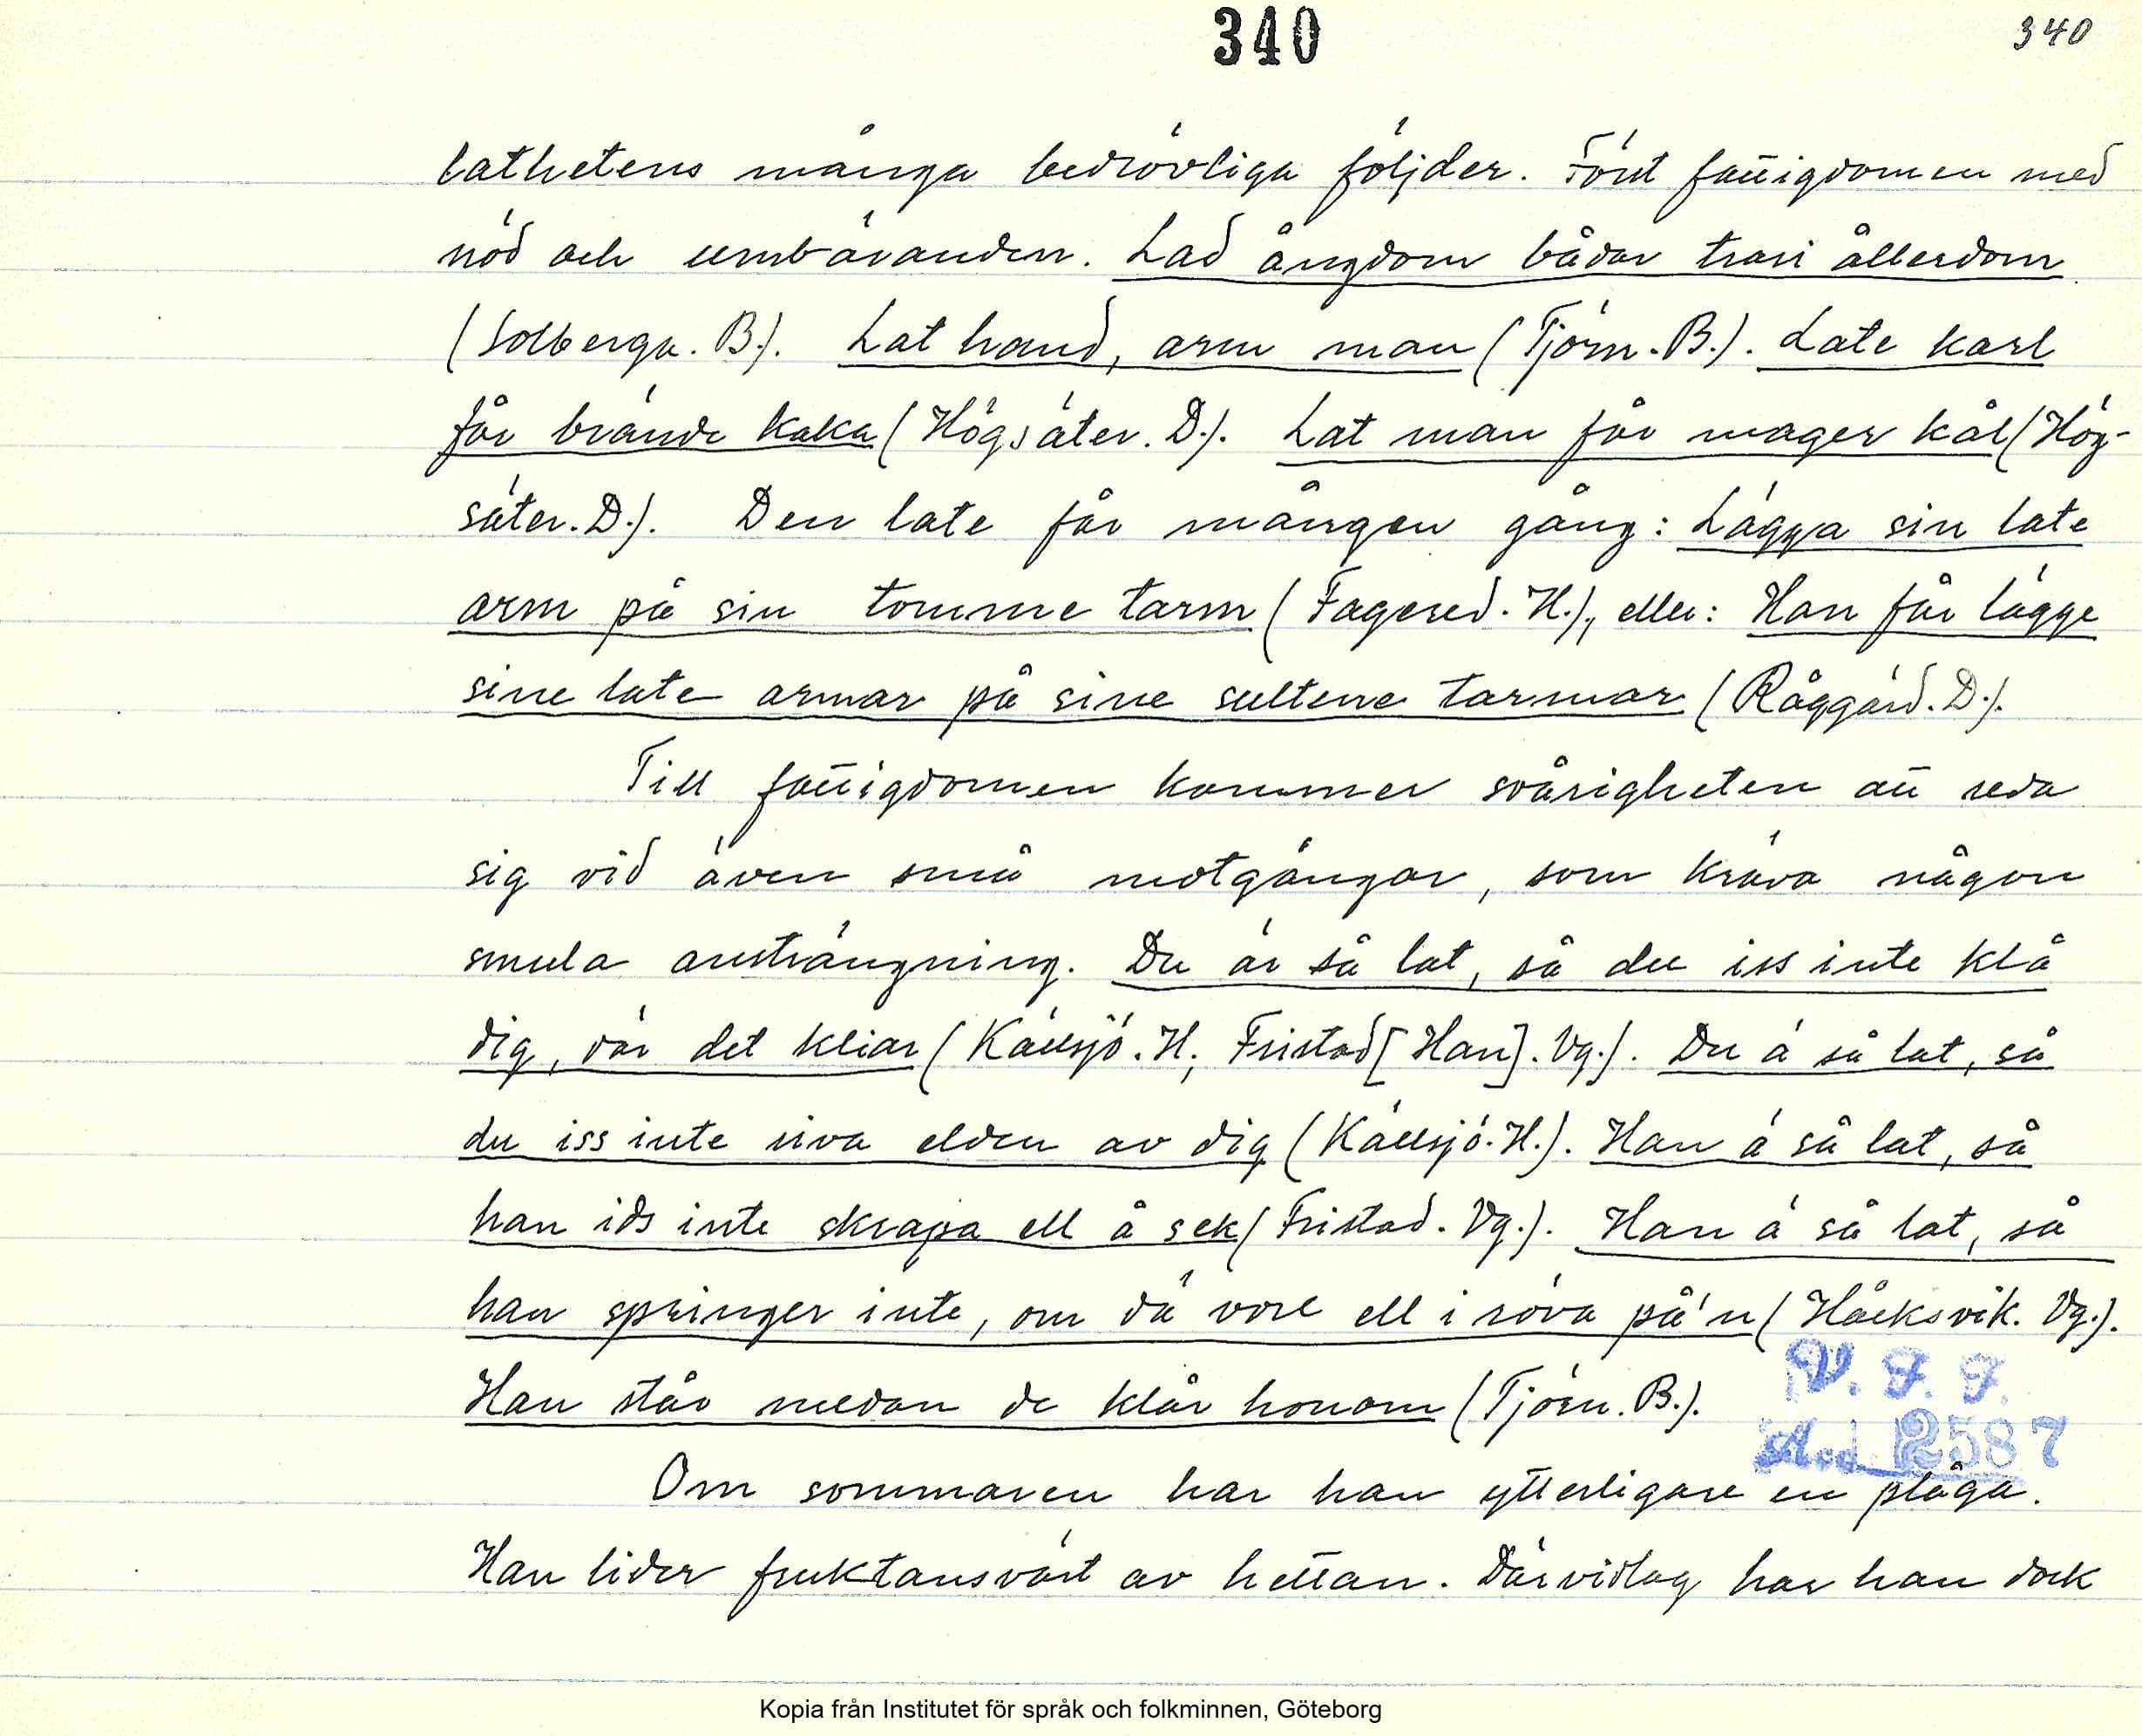 340
340
lathetens många bedrövliga följder. Först fattigdomen med
nöd och umbäranden. Lad ångdom bådar trasi ållerdom
(Solberga. B.). Lat hand, arm man (Tjörn. B.). Late karl
får brände kaka (Högsäter. D.). Lat man får mager kål (Hög-
säter. D.). Den late får mången gång: Lägga sin late
arm på sin tomme tarm (Fagered. H.), eller: Han får lägge
sine late armar på sine sultene tarmar (Råggärd. D.).
Till fattigdomen kommer svårigheten att reda
sig vid även små motgångar, som kräva någon
smula ansträngning. Du är så lat, så du iss inte klå
dig, där det kliar (Källsjö. H., Fristad [Han]. Vg.). Du ä så lat, så
du iss inte riva elden av dig (Källsjö. H.). Han ä så lat, så
han ids inte skrapa ell å sek (Fristad. Vg.). Han ä så lat, så
han springer inte, om dä vore ell i röva på'n (Håcksvik. Vg.).
Han står medan de klår honom (Tjörn. B.).
V. F. F.
Acc. 2587
Om sommaren har han ytterligare en plåga.
Han lider fruktansvärt av hettan. Därvidlag har han dock
Kopia från Institutet för språk och folkminnen, Göteborg